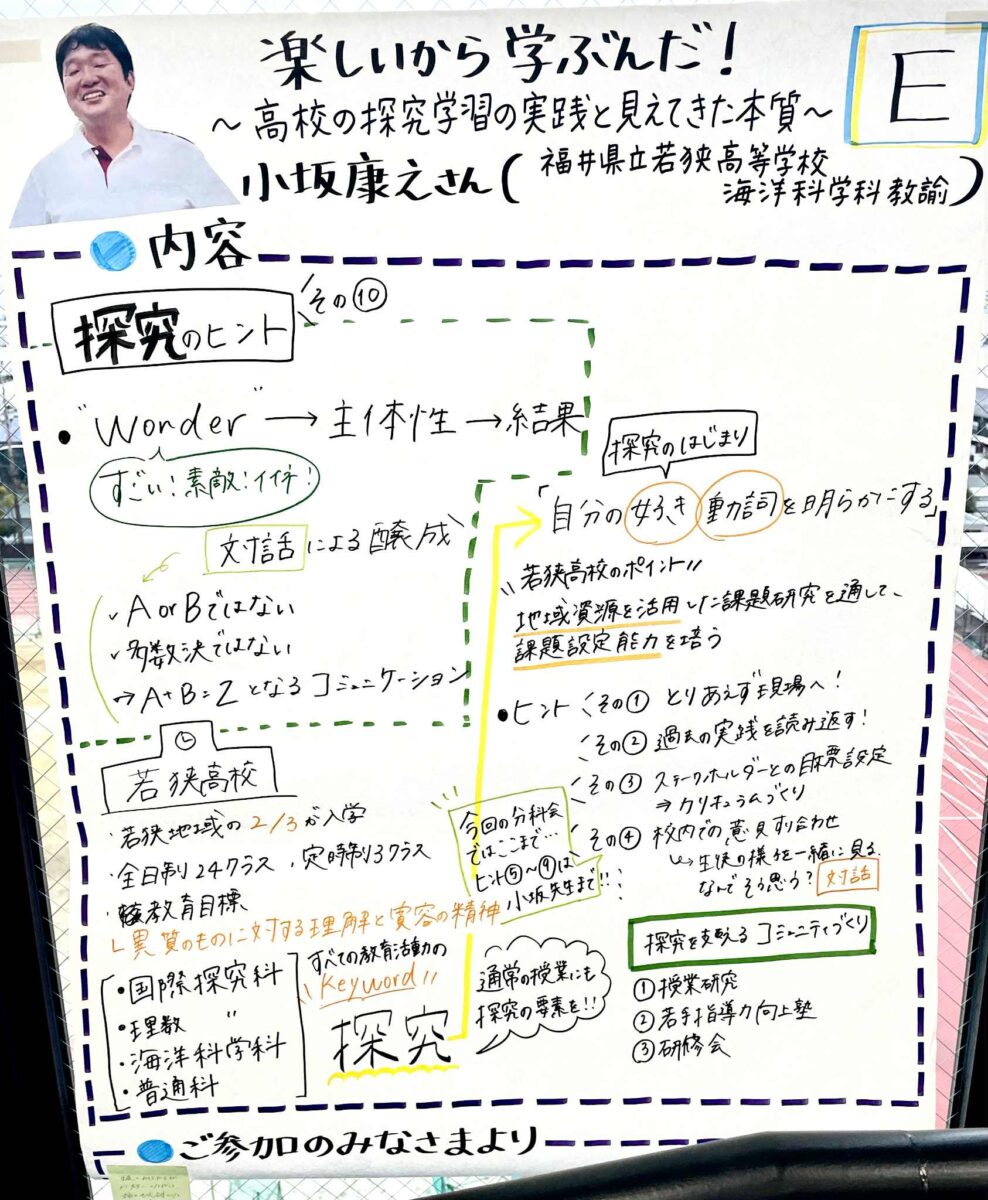 楽しいから学ぶんだ!
E
～高校の探究学習の実践と見えてきた本質～
小坂康之さん(福井県立若狭高等学校
海洋科学科教諭)
内容
探究のヒント
その⑩
・"Wonder"→主体性→結果
すごい!素敵!イイネ!
対話による醸成
✓AorBではない
✓多数決ではない
→A+B=Zとなるコミュニケーション
若狭高校
・若狭地域の2/3が入学
・全日制24クラス、定時制3クラス
・教育目標
└異質のものに対する理解と寛容の精神
・国際探究科
・理数 〃
・海洋科学科
・普通科
すべての教育活動の
Keyword
探究
通常の授業にも
探究の要素を!!
探究のはじまり
「自分の好き動詞を明らかにする」
若狭高校のポイント
地域資源を活用した課題研究を通して、
課題設定能力を培う
・ヒント
その① とりあえず現場へ!
その② 過去の実践を読み返す!
その③ ステークホルダーとの目標設定
⇒カリキュラムづくり
その④ 校内での意見すり合わせ
↳生徒の様子を一緒に見る。
なんでそう思う?対話
今回の分科会
ではここまで…
ヒント⑤～⑨は
小坂先生まで!!
探究を支えるコミュニティづくり
①授業研究
②若手指導力向上塾
③研修会
ご参加のみなさまより